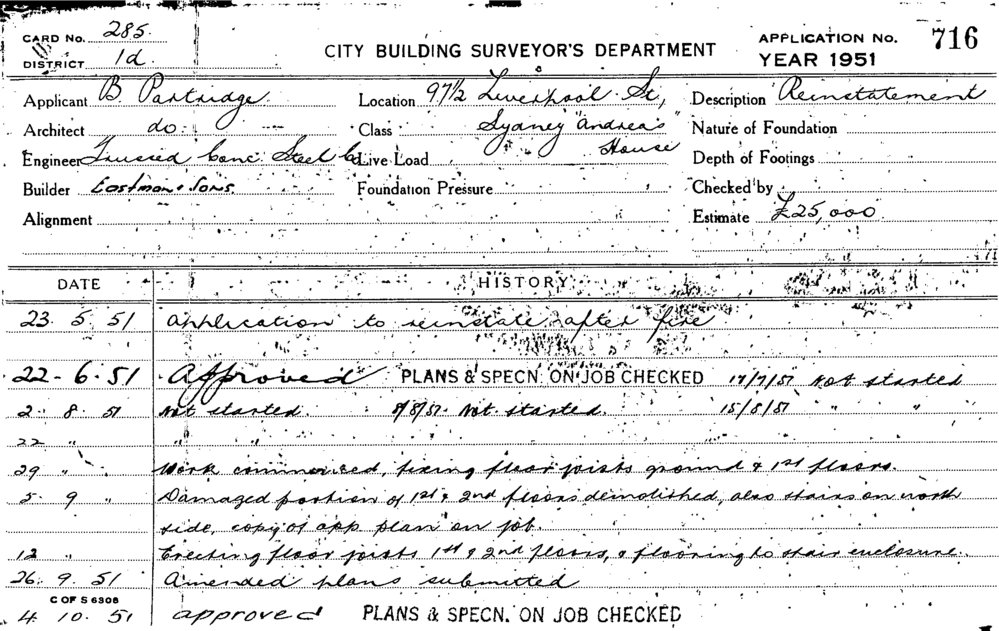 CARD No. 285.
DISTRICT 1d.
CITY BUILDING SURVEYOR'S DEPARTMENT
APPLICATION No. 716
YEAR 1951
Applicant B Partridge. Location 97½ Liverpool St, Description Reinstatement
Architect do. Class Sydney "Andrea's House Nature of Foundation
Engineer Trussed Conc. Steel Co Live Load Depth of Footings
Builder Eastman & Sons. Foundation Pressure Checked by
Alignment Estimate £25,000
DATE HISTORY
23. 5. 51 Application to reinstate after fire
22 - 6. 51 Approved PLANS & SPECN. ON JOB CHECKED 17/7/51 Not started
2. 8. 51 Not started. 8/8/51. Not started. 15/8/51 " "
22 " " "
29 " Work commenced, fixing floor joists ground & 1st floors.
5. 9 " Damaged portion of 1st & 2nd floors demolished, also stairs on north
side, copy of app. plan on job.
12 " Erecting floor joists 1st & 2nd floors, & flooring to stair enclosure.
26. 9. 51 Amended plans submitted
C OF S 6306
4. 10. 51 approved PLANS & SPECN. ON JOB CHECKED